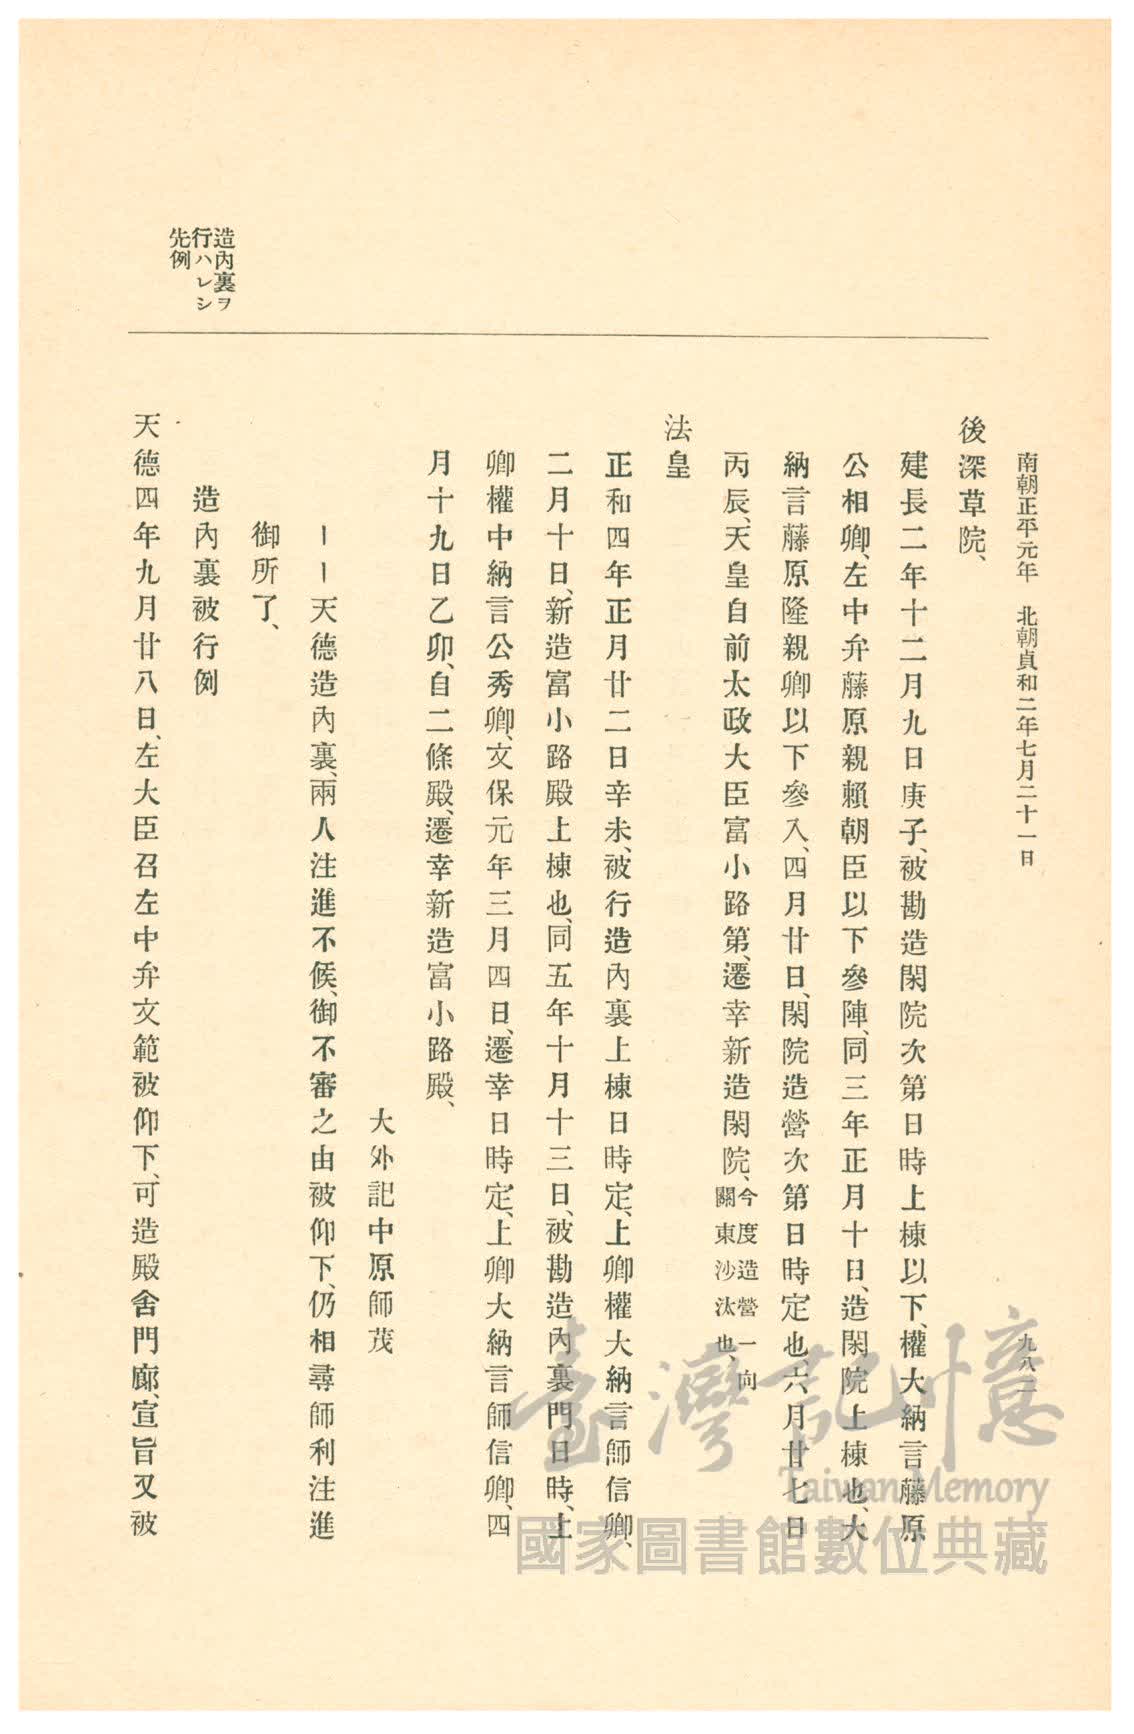 南朝正平元年　北朝貞和二年七月二十一日
九八二
造內裏ヲ
行ハレシ
先例
後深草院、
建長二年十二月九日庚子、被勘造閑院次第日時上棟以下、權大納言藤原
公相卿、左中弁藤原親賴朝臣以下參陣、同三年正月十日、造閑院上棟也、大
納言藤原隆親卿以下參入、四月廿日、閑院造營次第日時定也、六月廿七日
丙辰、天皇自前太政大臣富小路第、遷幸新造閑院、今度造營一向關東沙汰也、
法皇
正和四年正月廿二日辛未、被行造內裏上棟日時定、上卿權大納言師信卿、
二月十日、新造富小路殿上棟也、同五年十月十三日、被勘造內裏門日時、上
卿權中納言公秀卿、文保元年三月四日、遷幸日時定、上卿大納言師信卿、四
月十九日乙卯、自二條殿、遷幸新造富小路殿、
大外記中原師茂
ーー天德造內裏、兩人注進不候、御不審之由被仰下、仍相尋師利注進
御所了、
造內裏被行例
天德四年九月廿八日、左大臣召左中弁文範被仰下、可造殿舍門廊、宣旨又被
臺灣記憶
Taiwan Memory
國家圖書館數位典藏